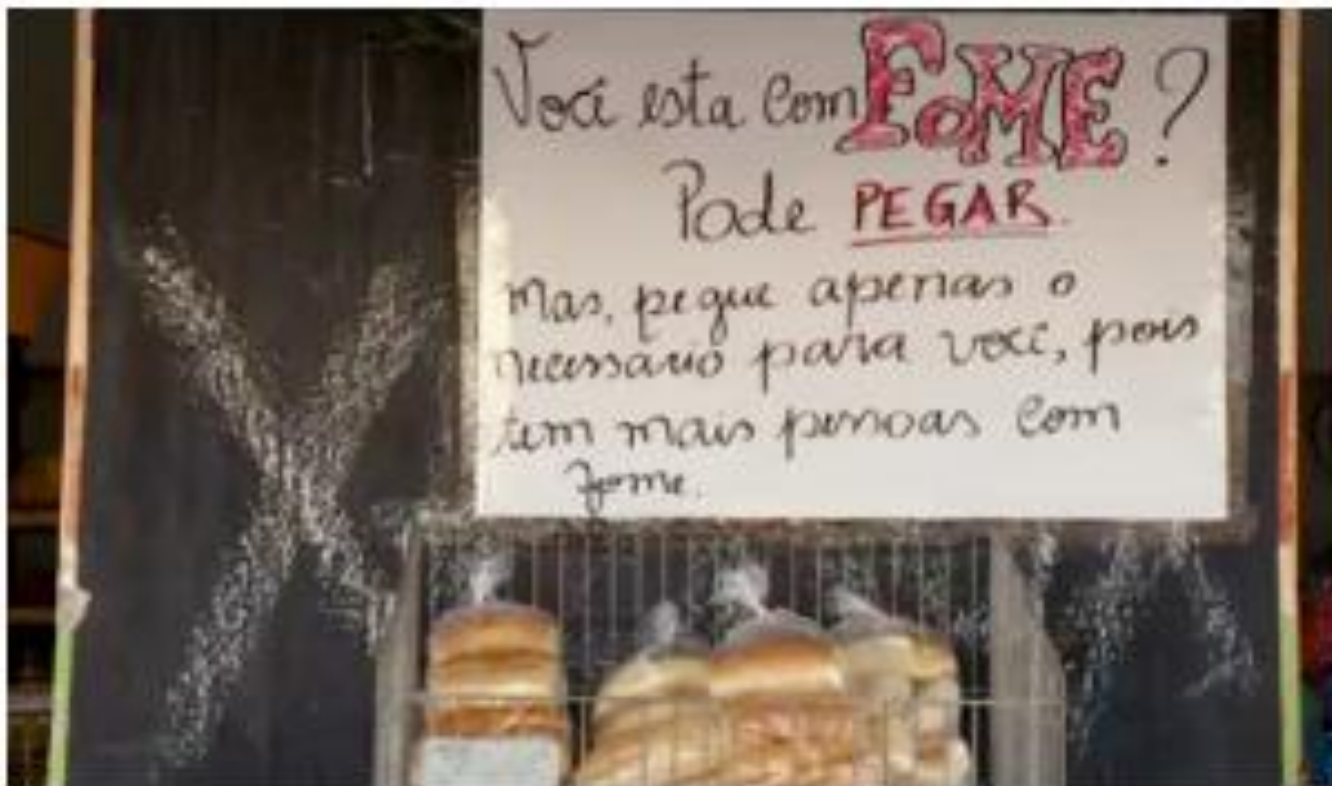 Você esta com FOME?
Pode PEGAR.
Mas, pegue apenas o
necessario para você, pois
tem mais pessoas com
fome.